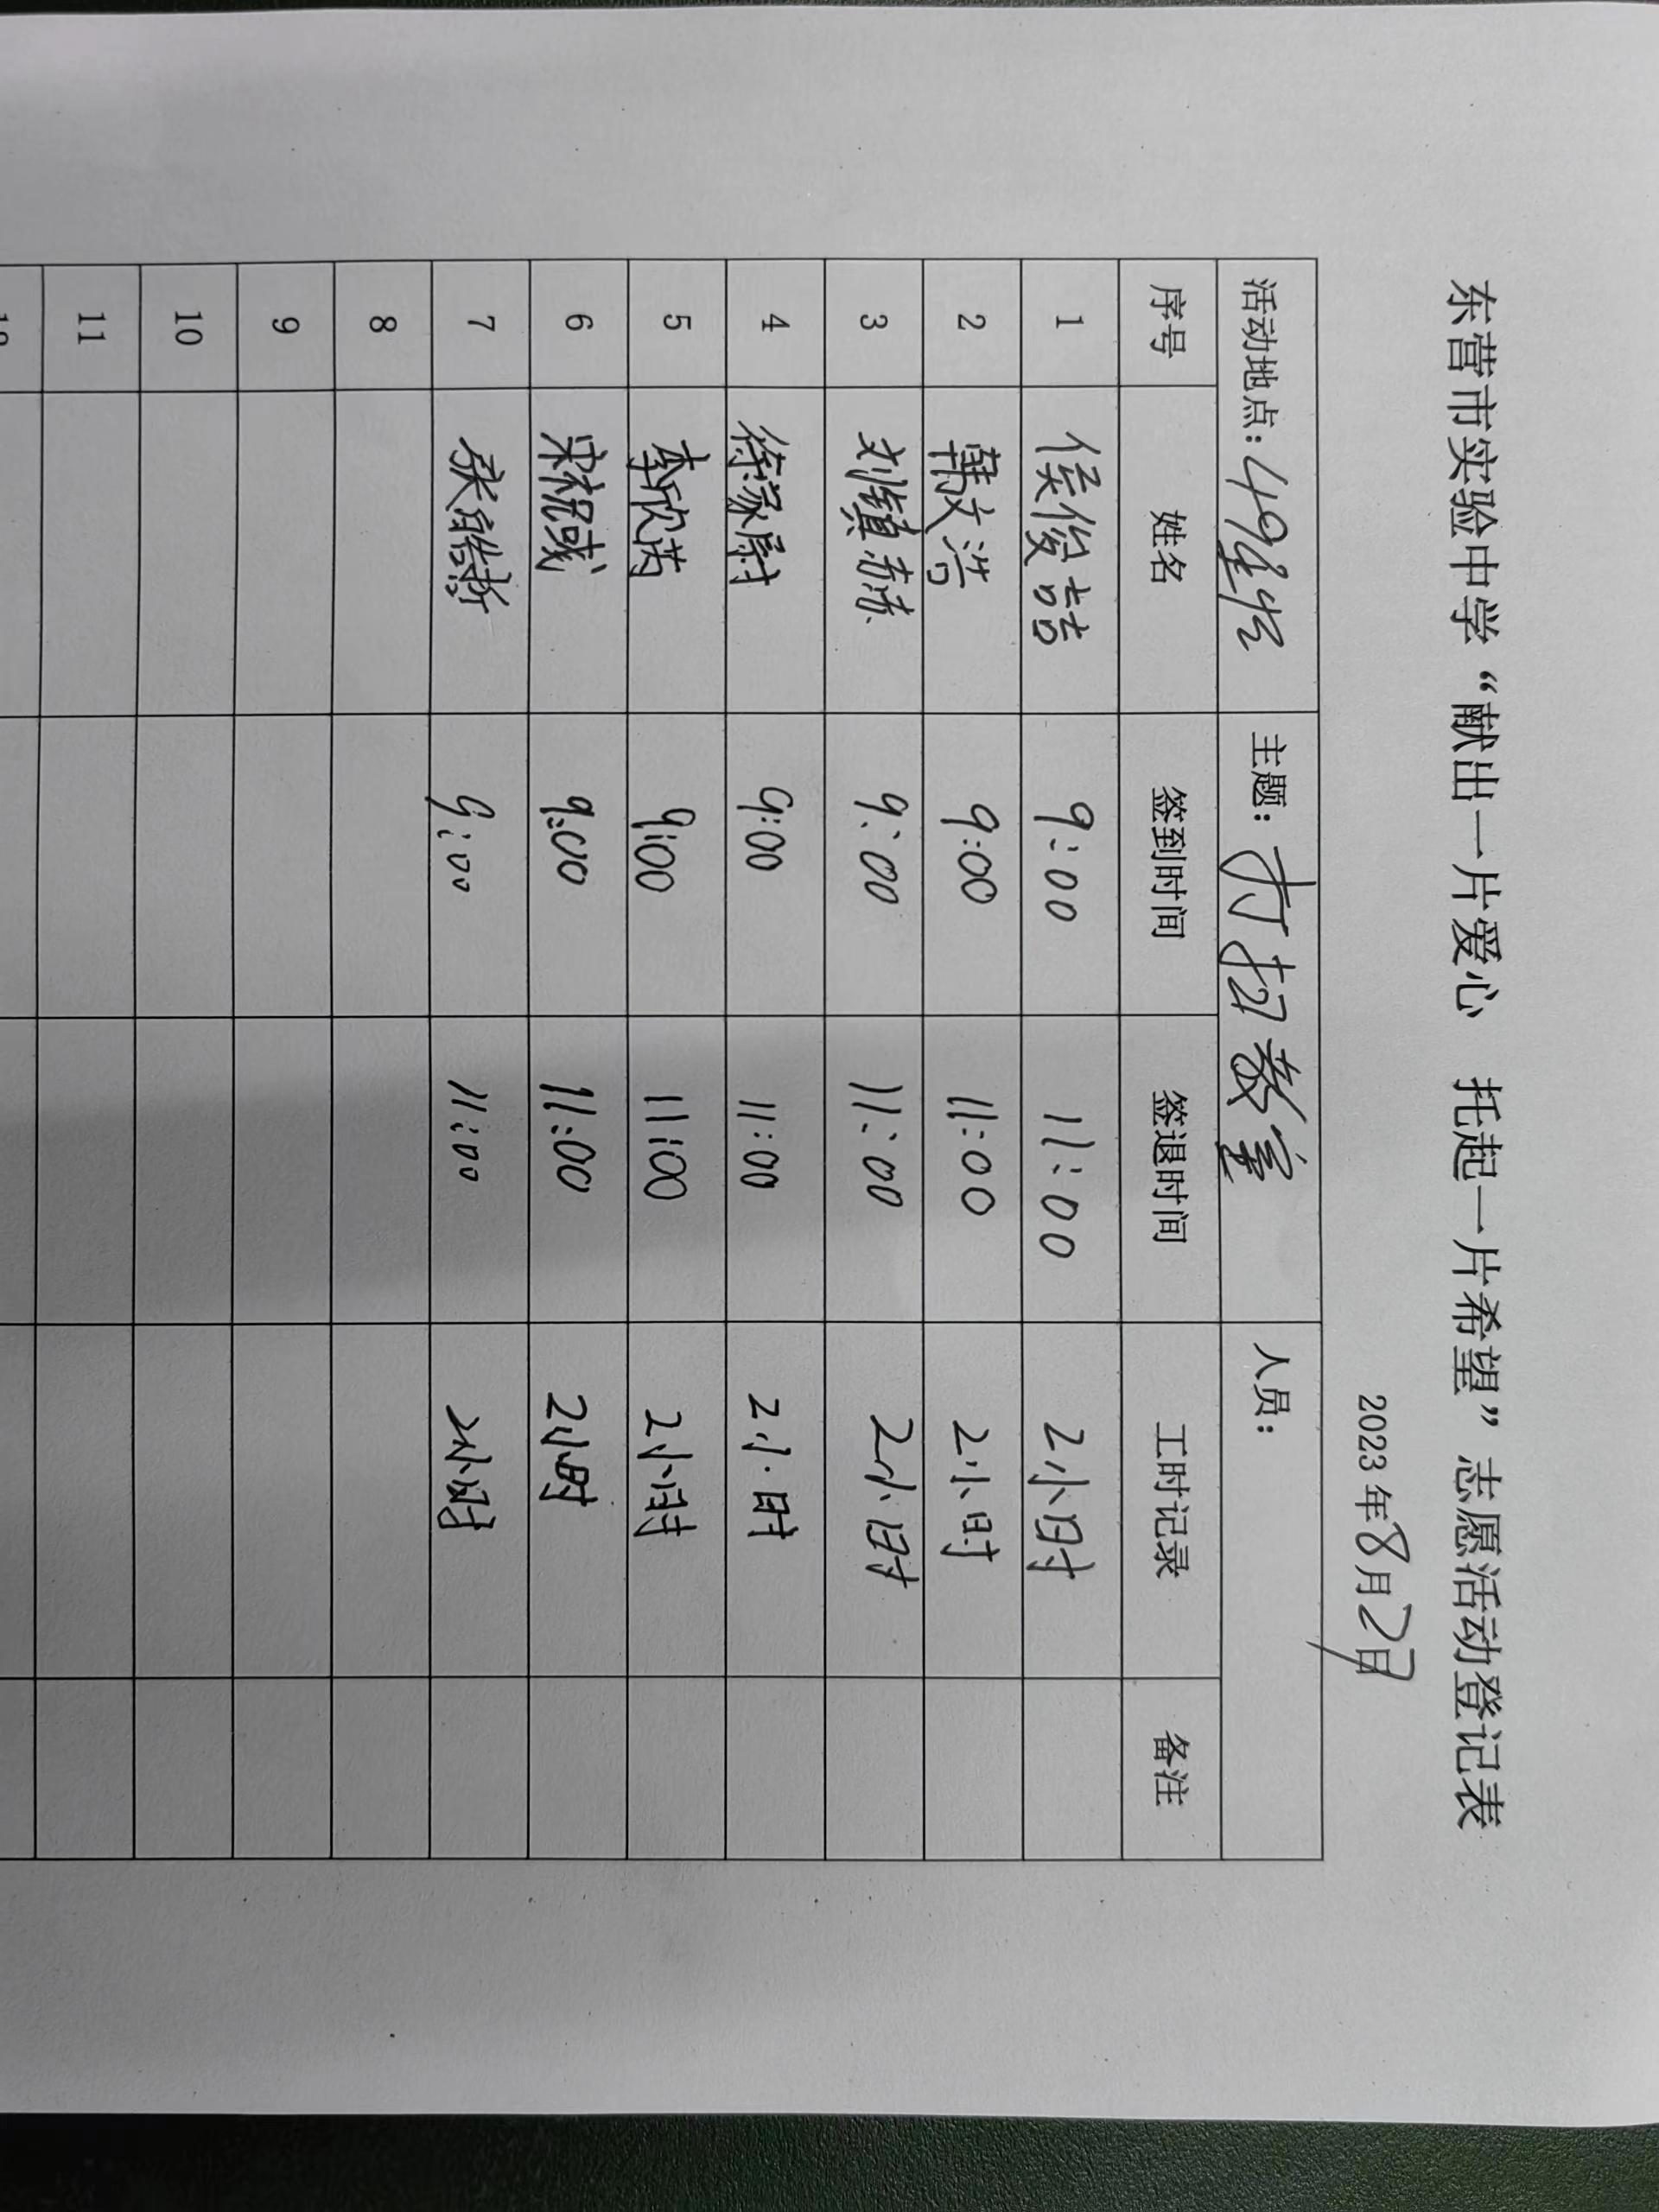 东营市实验中学“献出一片爱心 托起一片希望”志愿活动登记表
2023年8月2日
活动地点: 主题:打扫教室 人员:
序号 姓名 签到时间 签退时间 工时记录 备注
1 侯俊喆 9:00 11:00 2小时
2 韩文浩 9:00 11:00 2小时
3 刘慎赫 9:00 11:00 2小时
4 徐家尉 9:00 11:00 2小时
5 李欣芮 9:00 11:00 2小时
6 宋祝彧 9:00 11:00 2小时
7 张皓哲 9:00 11:00 2小时
8
9
10
11